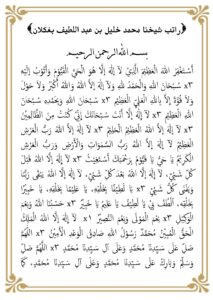 راتب شيخنا محمد خليل بن عبد اللطيف بنكلان
بسم الله الرحمن الرحيم
أَسْتَغْفِرُ اللهَ الْعَظِيْمَ الَّذِيْ لَا إِلٰهَ إِلَّا هُوَ الْحَيُّ الْقَيُّوْمُ وَأَتُوْبُ إِلَيْهِ
x٣ سُبْحَانَ اللهِ وَالْحَمْدُ لِلّٰهِ وَلَا إِلٰهَ إِلَّا اللهُ وَاللهُ أَكْبَرُ وَلَا حَوْلَ
وَلَا قُوَّةَ إِلَّا بِاللهِ الْعَلِيِّ الْعَظِيْمِ x٣ سُبْحَانَ اللهِ وَبِحَمْدِهِ سُبْحَانَ
اللهِ الْعَظِيْمِ x٣ لَا إِلٰهَ إِلَّا أَنْتَ سُبْحَانَكَ إِنِّيْ كُنْتُ مِنَ الظَّالِمِيْنَ
x٣ لَا إِلٰهَ إِلَّا اللهُ الْعَظِيْمُ الْحَلِيْمُ x٣ لَا إِلٰهَ إِلَّا اللهُ رَبُّ الْعَرْشِ
الْعَظِيْمِ لَا إِلٰهَ إِلَّا اللهُ رَبُّ السَّمَوَاتِ وَالْأَرْضِ وَرَبُّ الْعَرْشِ
الْكَرِيْمِ يَا حَيُّ يَا قَيُّوْمُ بِرَحْمَتِكَ أَسْتَغِيْثُ x٣ لَا إِلٰهَ إِلَّا اللهُ قَبْلَ
كُلِّ شَيْءٍ، لَا إِلٰهَ إِلَّا اللهُ بَعْدَ كُلِّ شَيْءٍ، لَا إِلٰهَ إِلَّا اللهُ يَبْقَى رَبُّنَا
وَيَفْنَى كُلُّ شَيْءٍ x٣ يَا لَطِيْفًا بِخَلْقِهِ، يَا عَلِيْمًا بِخَلْقِهِ، يَا خَبِيْرًا
بِخَلْقِهِ، اُلْطُفْ بِنَا يَا لَطِيْفُ يَا عَلِيْمُ يَا خَبِيْرُ x٣ حَسْبُنَا اللهُ وَنِعْمَ
الْوَكِيْلُ x٣ نِعْمَ الْمَوْلَى وَنِعْمَ النَّصِيْرُ x١ لَا إِلٰهَ إِلَّا اللهُ الْمَلِكُ
الْحَقُّ الْمُبِيْنُ مُحَمَّدٌ رَسُوْلُ اللهِ صَادِقُ الْوَعْدِ الْأَمِيْنُ x٣ اَللّٰهُمَّ
صَلِّ عَلَى سَيِّدِنَا مُحَمَّدٍ وَعَلَى آلِ سَيِّدِنَا مُحَمَّدٍ x٣ اَللّٰهُمَّ صَلِّ
وَسَلِّمْ وَبَارِكْ عَلَى سَيِّدِنَا مُحَمَّدٍ وَعَلَى آلِ سَيِّدِنَا مُحَمَّدٍ، كَمَا